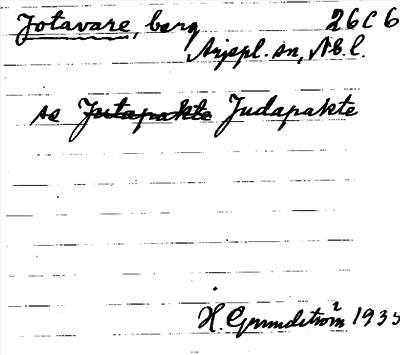 Jotavare, berg 26C6
Arjepl. sn, Nb. l.
se Jutapakte Judapakte
H. Grundström 1935